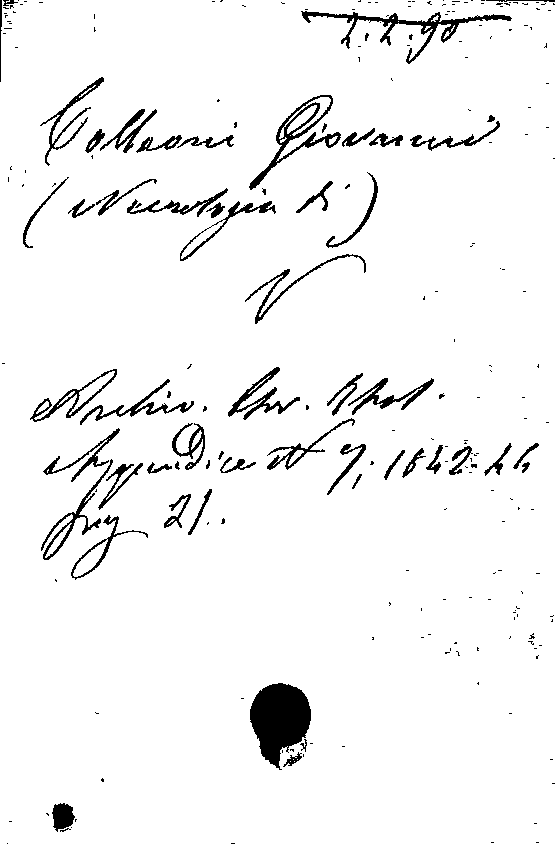 2.2.90
Colleoni Giovanni
(Necrologia di)
V
Archiv. Stor. Ital.
Appendice N 7; 1842-44
pag 21.